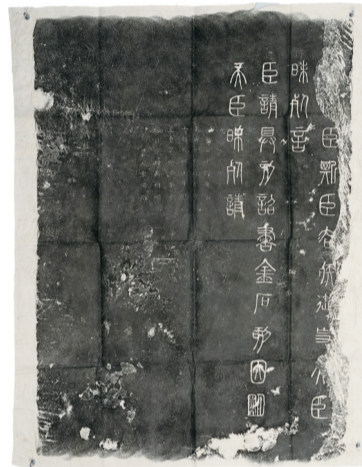 臣斯臣去疾御史夫臣
昧死言
臣請具刻詔書金石刻因明
矣臣昧死請